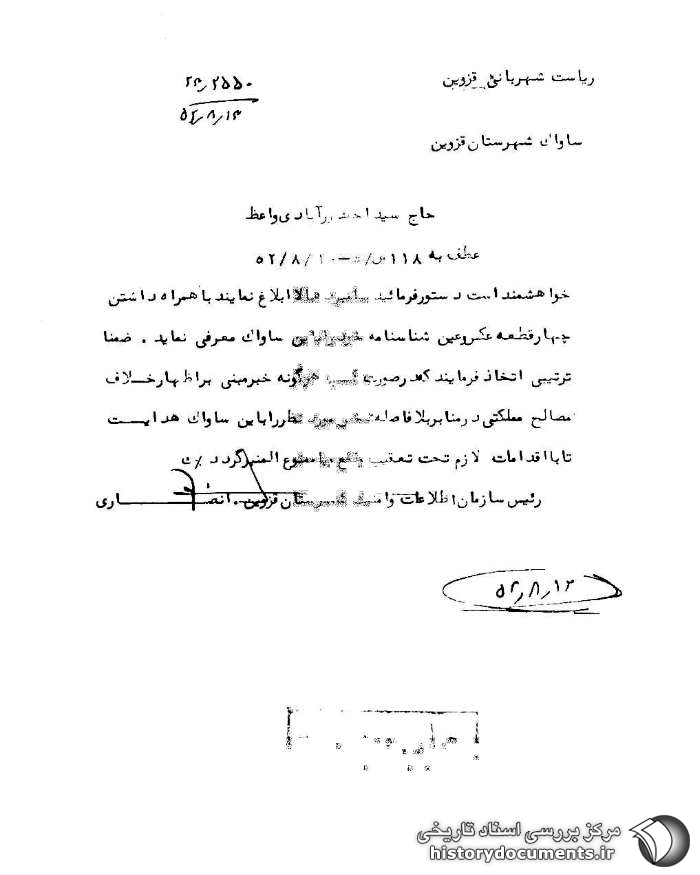 ریاست شهربانی قزوین
۲۳٫۲۵۵۰
۵۲٫۸٫۱۳
ساواک شهرستان قزوین
حاج سید احمد واعظ
عطف به ۵۲/۸/۱۰
خواهشمند است دستور فرمائید ابلاغ نمایند با همراه داشتن
چهار قطعه عکس و عین شناسنامه ساواک معرفی نماید . ضمنا
ترتیبی اتخاذ فرمایند که در صورت هرگونه خبر مبنی بر اظهار خلاف
مصالح مملکتی در منابر بلافاصله مورد نظر را باین ساواک هدایت
تا با اقدامات لازم تحت تعقیب واقع و ممنوع المنبر گردد
رئیس سازمان اطلاعات و امنیت شهرستان قزوین . انصاری
۵۲٫۸٫۱۳
مرکز بررسی اسناد تاریخی
historydocuments.ir